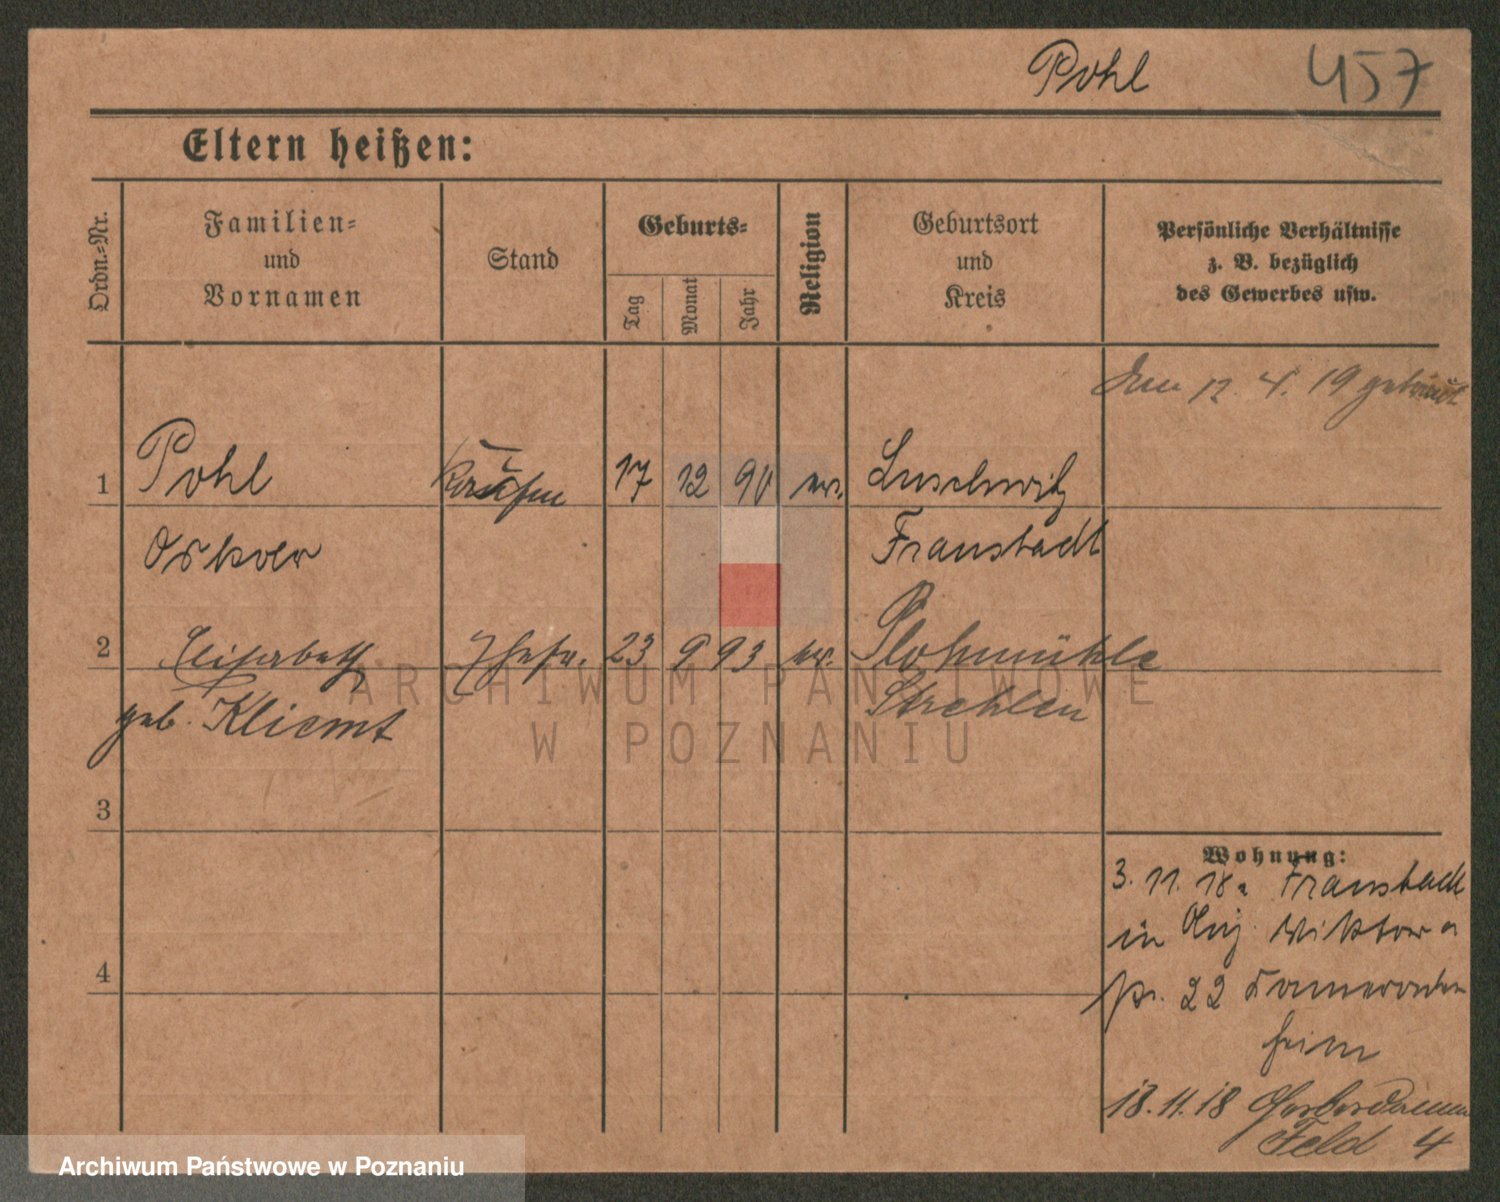 Pohl 457
Eltern heißen:
Ordn.=Nr.
Familien=
und
Vornamen
Stand
Geburts=
Tag
Monat
Jahr
Religion
Geburtsort
und
Kreis
Persönliche Verhältnisse
z. B. bezüglich
des Gewerbes usw.
12. 4. 19 getraut
1 Pohl 17 12 90 ev. Luschwitz
Oskar Fraustadt
2 Elisabeth Ehefr. 23 9 93 ev. Plohmühle
geb. Kliemt Strehlen
3
4
Wohnung:
3. 11. 18 Fraustadt
in
22 Kameraden
heim
13. 11. 18 Gerberdamm
Feld 4
ARCHIWUM PAŃSTWOWE
W POZNANIU
Archiwum Państwowe w Poznaniu